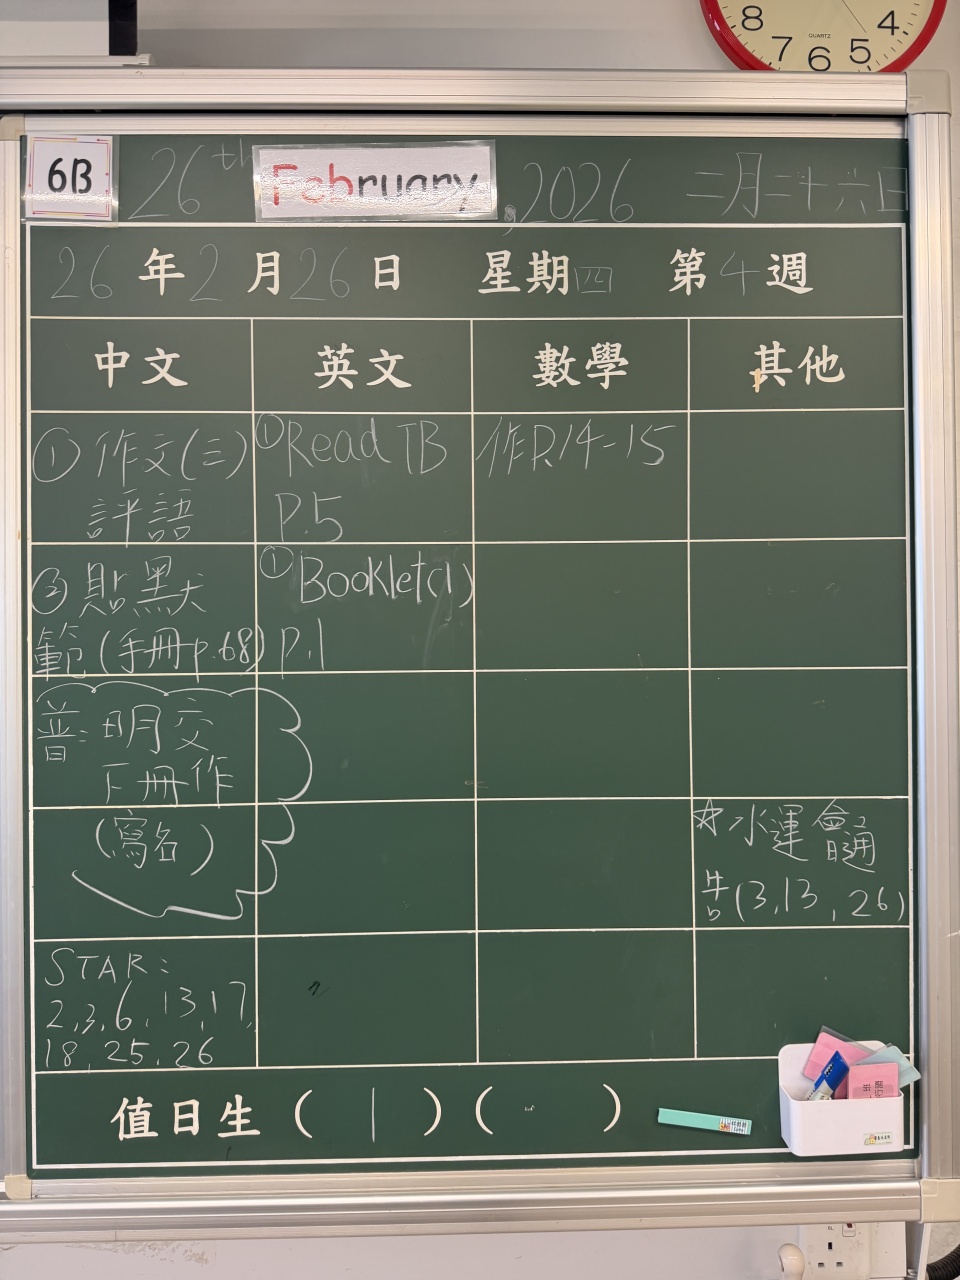 8 7 6 5 4
QUARTZ
6B
26th February, 2026 二月二十六日
26年2月26日 星期四 第4週
中文 英文 數學 其他
①作文(三)
評語
②貼默
範(手冊p.68)
普：明交
下冊作
(寫名)
STAR:
2,3,6,13,17,
18,25,26
①Read TB
P.5
①Booklet(1)
p.1
作P.14-15
☆水運會通
告(3,13,26)
值日生( 1 )( )